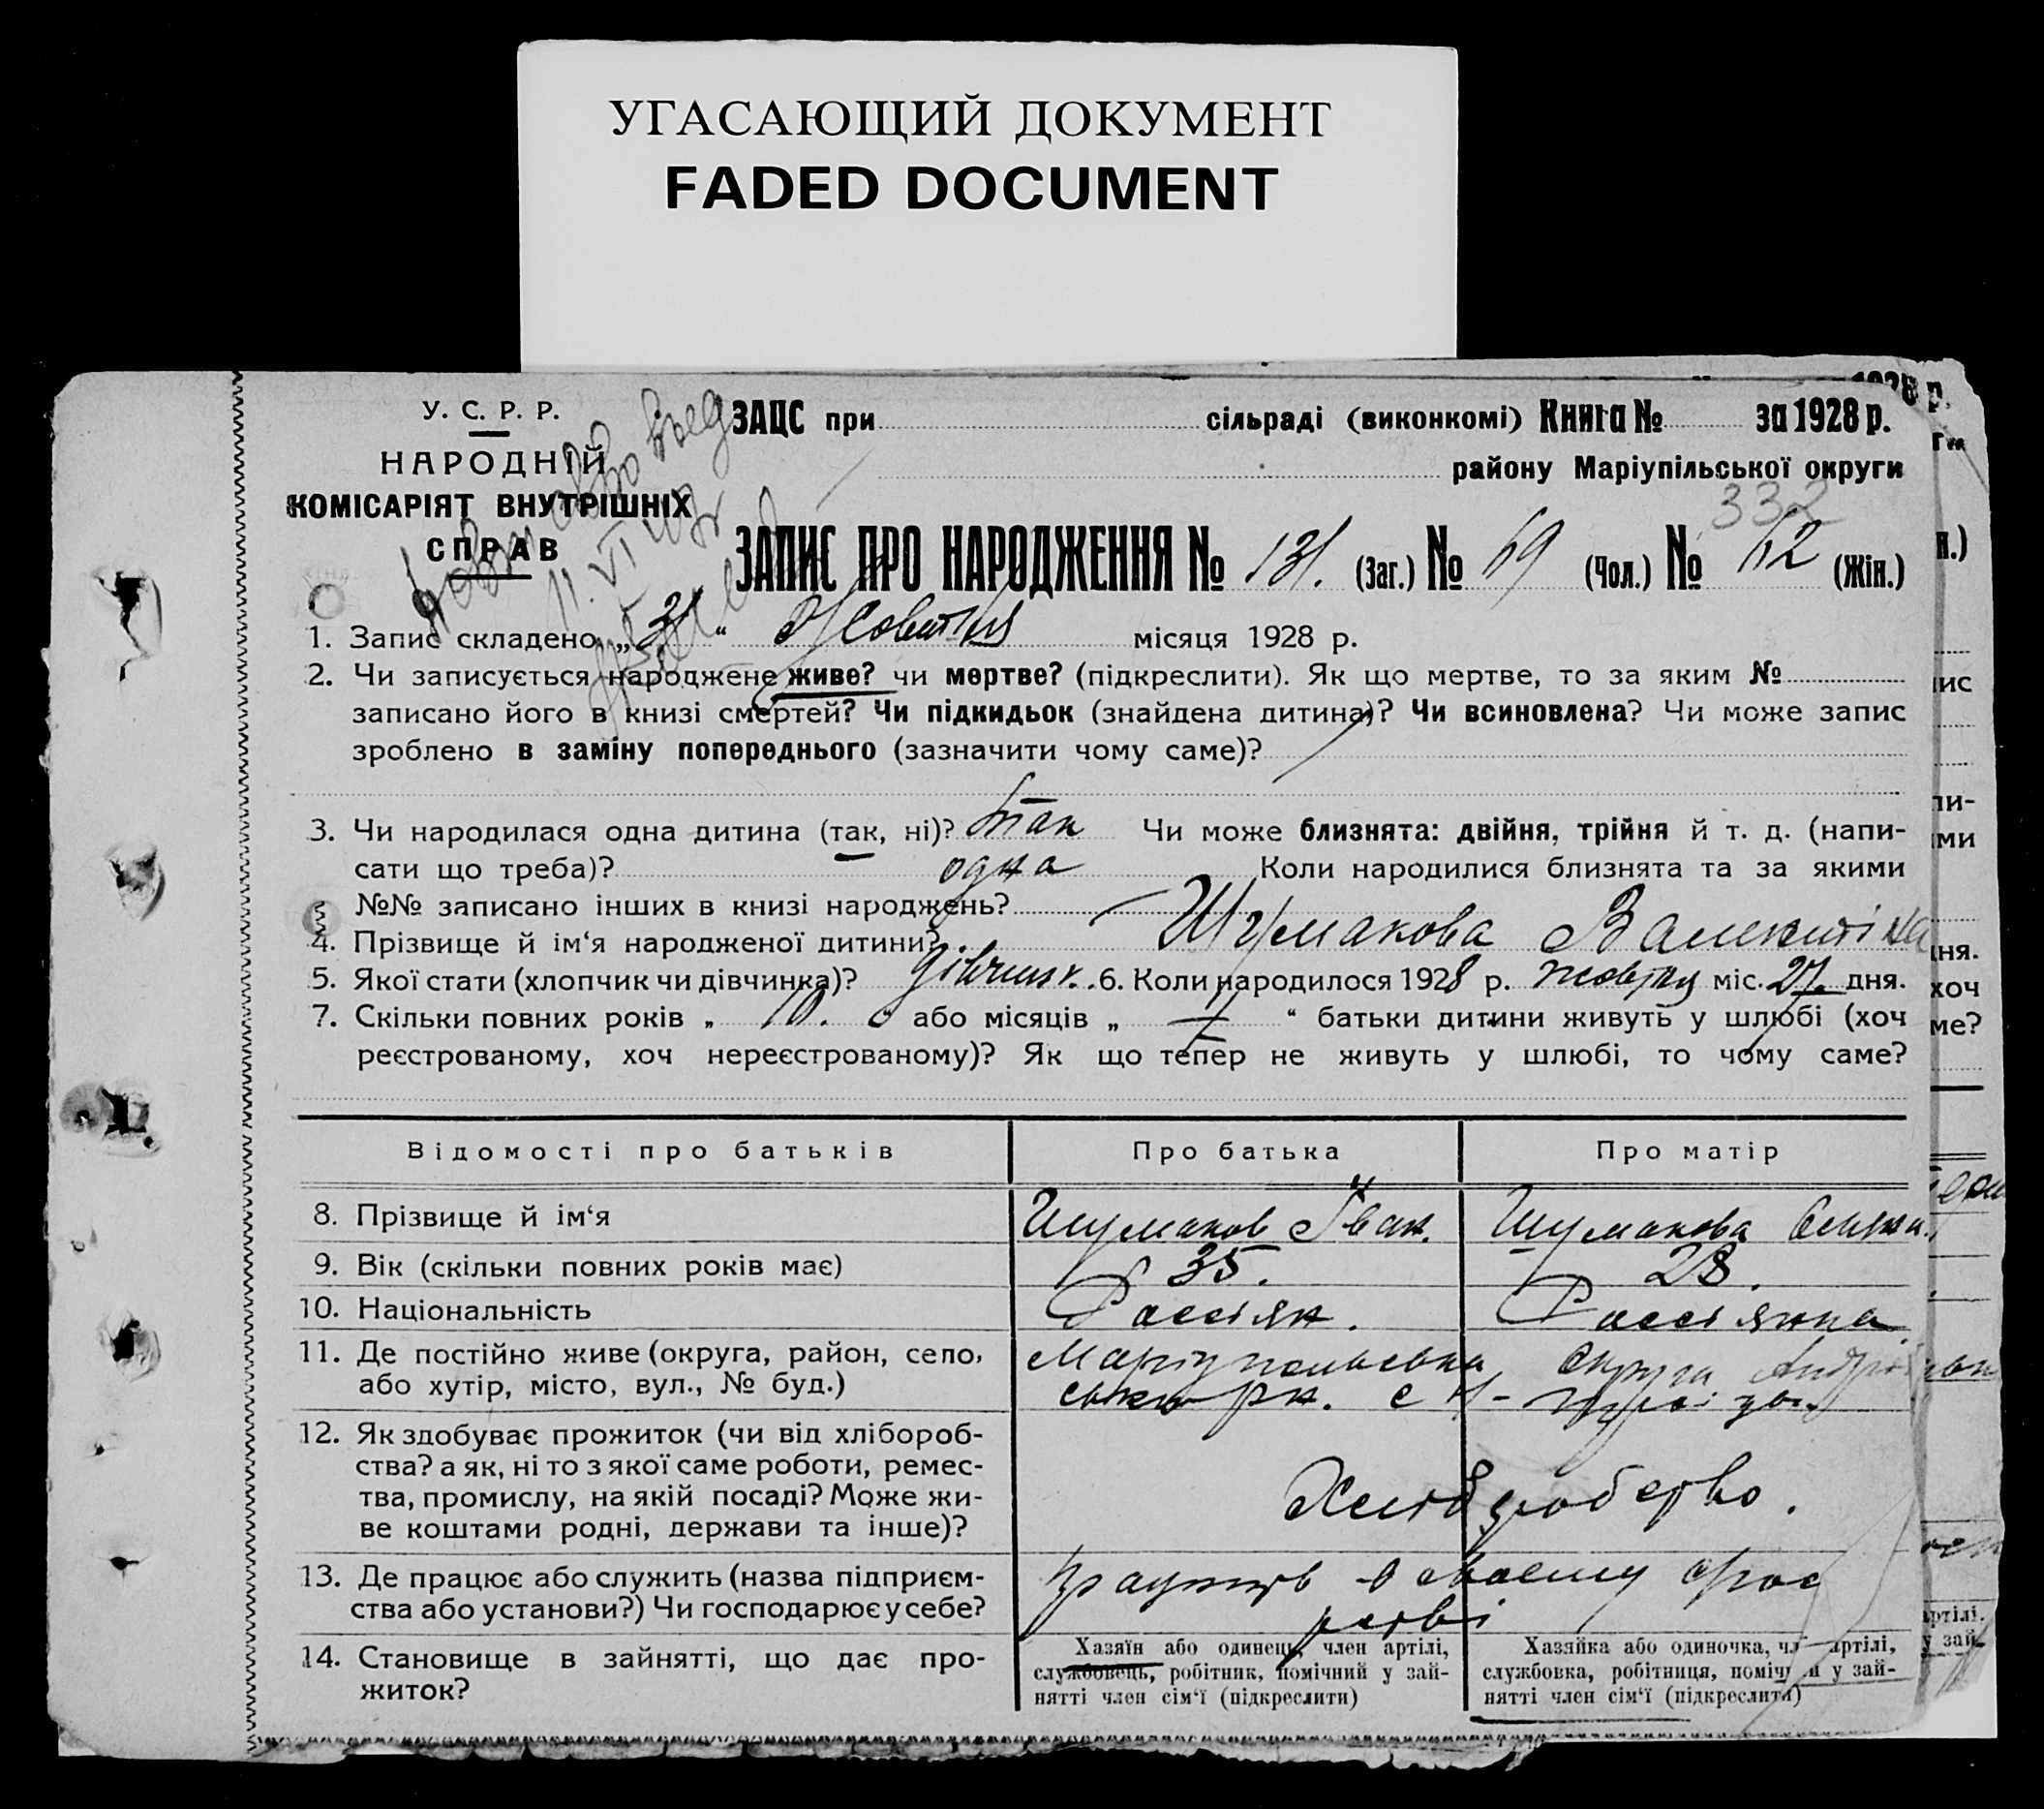 УГАСАЮЩИЙ ДОКУМЕНТ
FADED DOCUMENT
У. С. Р. Р.
НАРОДНІЙ
КОМІСАРІЯТ ВНУТРІШНІХ
СПРАВ
ЗАЦС при сільраді (виконкомі) Книга № за 1928 р.
району Маріупільської округи
332
ЗАПИС ПРО НАРОДЖЕННЯ № 131. (Заг.) № 69 (Чол.) № 62 (Жін.)
1. Запис складено „ 31 “ Жовтня місяця 1928 р.
2. Чи записується народжене живе? чи мертве? (підкреслити). Як що мертве, то за яким №
записано його в книзі смертей? Чи підкидьок (знайдена дитина)? Чи всиновлена? Чи може запис
зроблено в заміну попереднього (зазначити чому саме)?
3. Чи народилася одна дитина (так, ні)? так Чи може близнята: двійня, трійня й т. д. (напи-
сати що треба)? одна Коли народилися близнята та за якими
№№ записано інших в книзі народжень?
4. Прізвище й ім‘я народженої дитини? Шумакова Валентіна
5. Якої стати (хлопчик чи дівчинка)? дівчинк. 6. Коли народилося 1928 р. жовтня міс. 27. дня.
7. Скільки повних років „ 10. “ або місяців „ — “ батьки дитини живуть у шлюбі (хоч
реєстрованому, хоч нереєстрованому)? Як що тепер не живуть у шлюбі, то чому саме?
Відомості про батьків Про батька Про матір
8. Прізвище й ім‘я Шумаков Іван. Шумакова
9. Вік (скільки повних років має) 35. 28.
10. Національність Россіян. Россіянка
11. Де постійно живе (округа, район, село, Маріупольська Округа
або хутір, місто, вул., № буд.) рн. с
12. Як здобуває прожиток (чи від хлібороб-
ства? а як, ні то з якої саме роботи, ремес-
тва, промислу, на якій посаді? Може жи-
ве коштами родні, держави та інше)?
Хліборобство.
13. Де працює або служить (назва підприєм-
ства або установи?) Чи господарює у себе?
14. Становище в зайнятті, що дає про-
житок?
Хазяїн або одинець, член артілі,
службовець, робітник, помічний у зай-
нятті член сім‘ї (підкреслити)
Хазяйка або одиночка, чл артілі,
службовка, робітниця, помічн у зай-
нятті член сім‘ї (підкреслити)